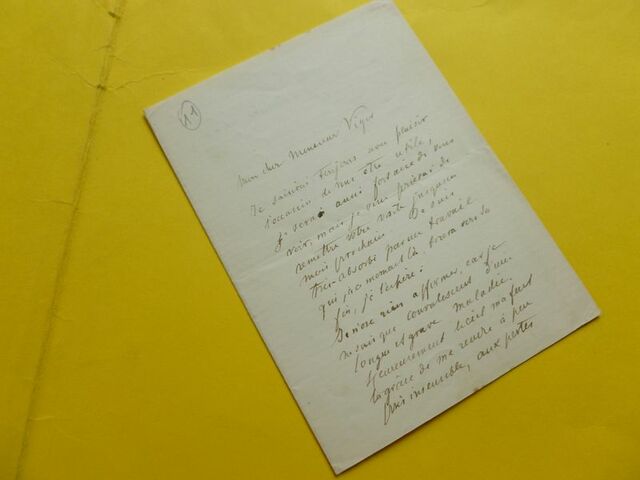 11
Mon cher Monsieur Viger
Je saisirai toujours avec plaisir
l'occasion de vous être utile,
Je serai aussi fort aise de vous
voir, mais je vous prierai de
remettre votre visite jusqu'au
mois prochain. Je suis
très absorbé par un travail
qui, à ce moment là tirera vers sa
fin, je l'espère.
Je n'ose rien affirmer, car je
ne suis que convalescent d'une
longue et grave maladie.
Heureusement le ciel m'a fait
la grâce de me rendre à peu
près insensible, aux pertes